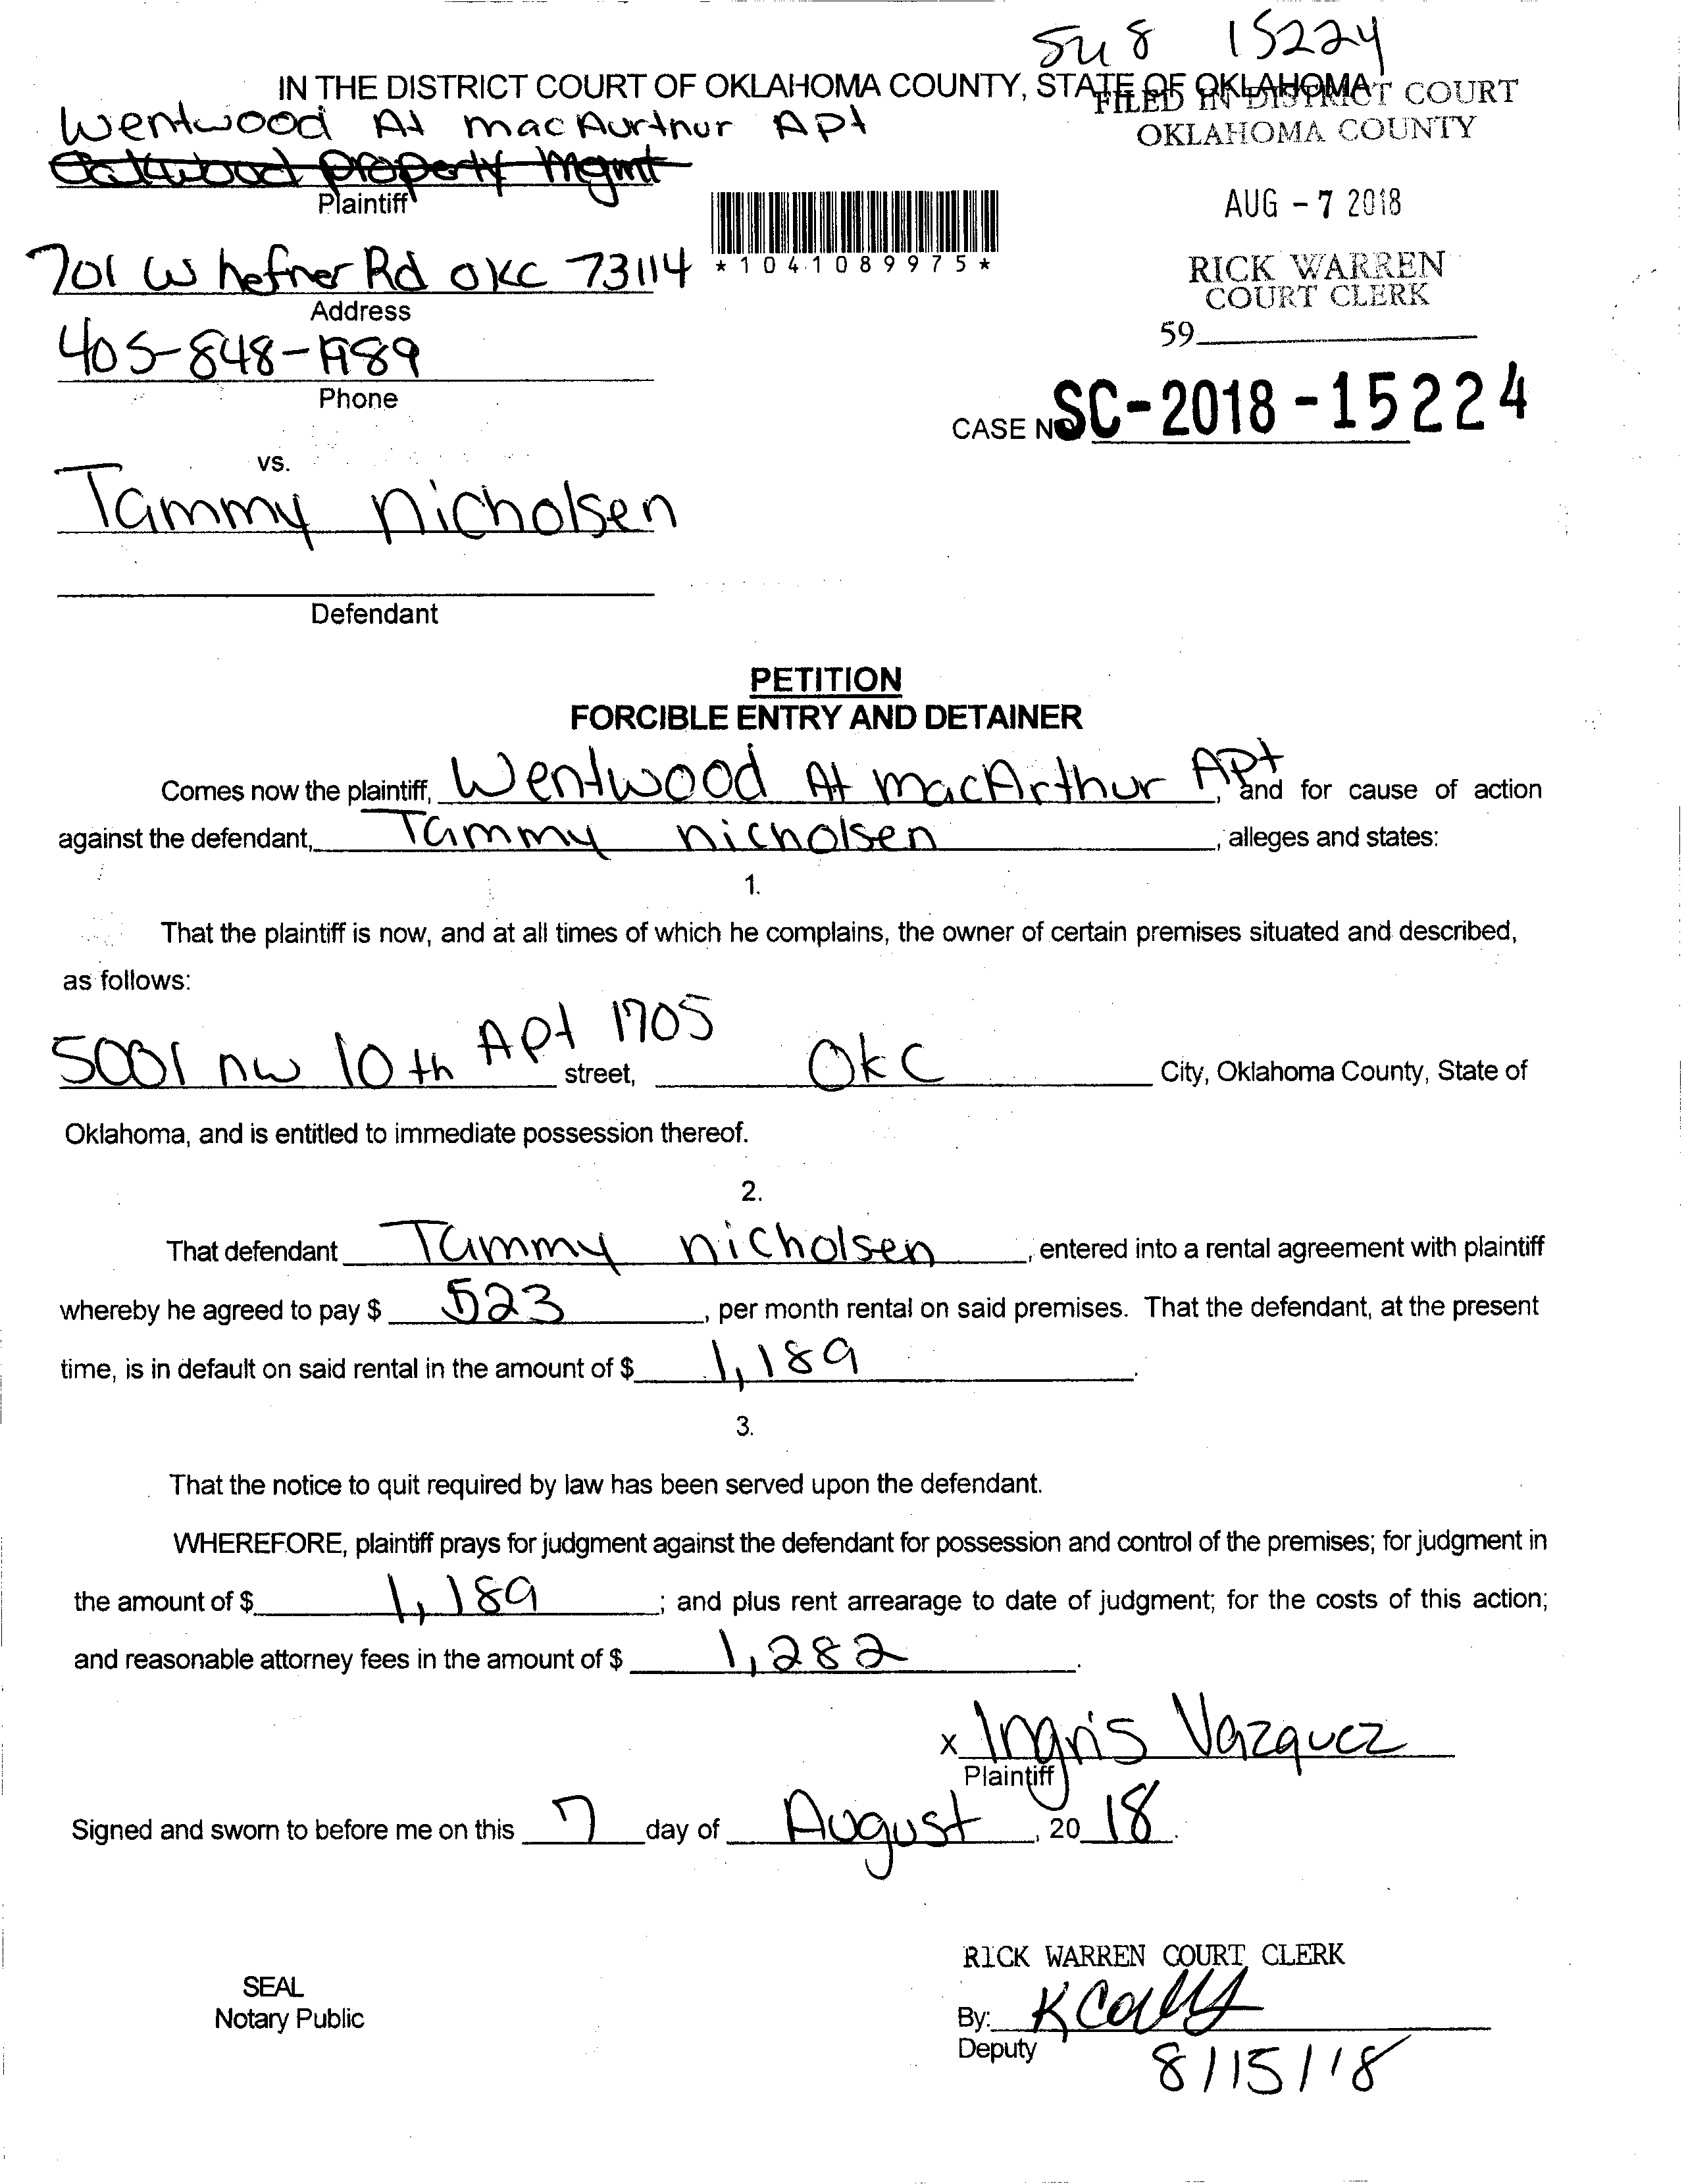 Su 8 15224
IN THE DISTRICT COURT OF OKLAHOMA COUNTY, STATE OF OKLAHOMA
FILED IN DISTRICT COURT
OKLAHOMA COUNTY
Wentwood At macAurthur Apt
Oakwood Property Mgmt
Plaintiff
AUG - 7 2018
701 W hefner Rd OKC 73114
Address
*1041089975*
RICK WARREN
COURT CLERK
59
405-848-1989
Phone
CASE NO SC-2018-15224
vs.
Tammy nicholsen
Defendant
PETITION
FORCIBLE ENTRY AND DETAINER
Comes now the plaintiff, Wentwood At macArthur Apt, and for cause of action
against the defendant, Tammy nicholsen, alleges and states:
1.
That the plaintiff is now, and at all times of which he complains, the owner of certain premises situated and described,
as follows:
5001 nw 10th Apt 1705 street, OkC City, Oklahoma County, State of
Oklahoma, and is entitled to immediate possession thereof.
2.
That defendant Tammy nicholsen, entered into a rental agreement with plaintiff
whereby he agreed to pay $ 523, per month rental on said premises. That the defendant, at the present
time, is in default on said rental in the amount of $ 1,189.
3.
That the notice to quit required by law has been served upon the defendant.
WHEREFORE, plaintiff prays for judgment against the defendant for possession and control of the premises; for judgment in
the amount of $ 1,189; and plus rent arrearage to date of judgment; for the costs of this action;
and reasonable attorney fees in the amount of $ 1,282.
x Ingris Vazquez
Plaintiff
Signed and sworn to before me on this 7 day of August, 2018.
RICK WARREN COURT CLERK
SEAL
Notary Public
By: K
Deputy
8/15/18